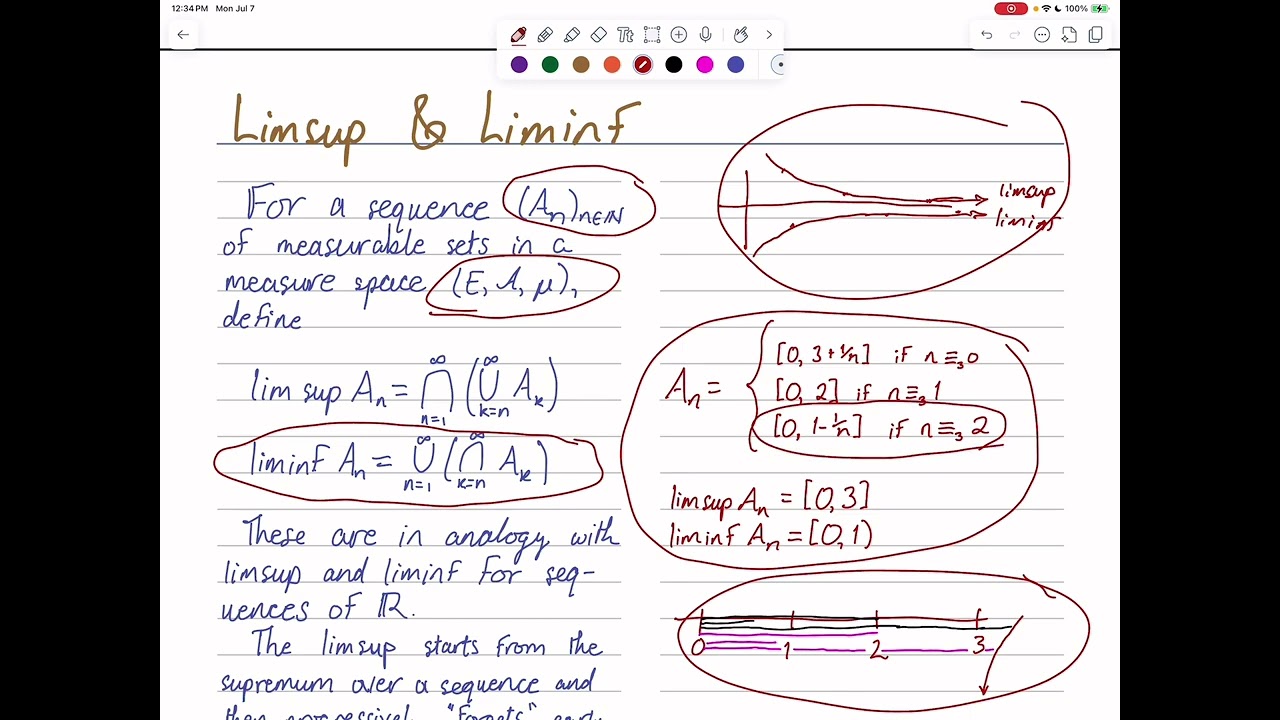 12:34 PM Mon Jul 7
100%
Limsup & Liminf
For a sequence (Aₙ)ₙ∈ℕ
of measurable sets in a
measure space (E, 𝒜, μ),
define
lim sup Aₙ = ⋂ₙ₌₁^∞ (⋃ₖ₌ₙ^∞ Aₖ)
liminf Aₙ = ⋃ₙ₌₁^∞ (⋂ₖ₌ₙ^∞ Aₖ)
These are in analogy with
limsup and liminf for seq-
uences of ℝ.
The limsup starts from the
supremum over a sequence and
limsup
liminf
Aₙ = { [0, 3+1/n] if n ≡₃ 0
[0, 2] if n ≡₃ 1
[0, 1-1/n] if n ≡₃ 2
limsup Aₙ = [0,3]
liminf Aₙ = [0,1)
0 1 2 3